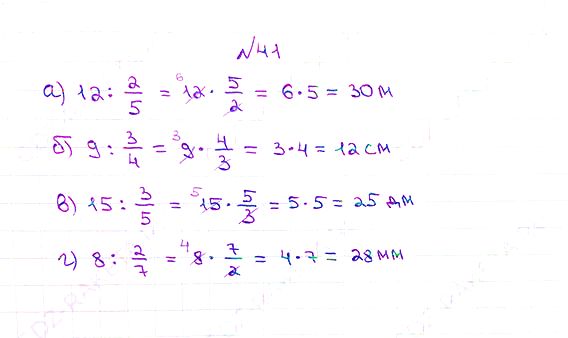 №41
а) 12 : 2/5 = 12 · 5/2 = 6 · 5 = 30 м
б) 9 : 3/4 = 9 · 4/3 = 3 · 4 = 12 см
в) 15 : 3/5 = 15 · 5/3 = 5 · 5 = 25 дм
г) 8 : 2/7 = 8 · 7/2 = 4 · 7 = 28 мм